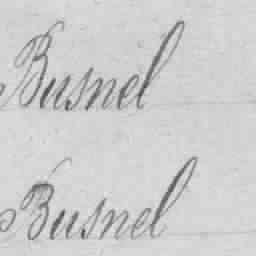 Busnel
Busnel